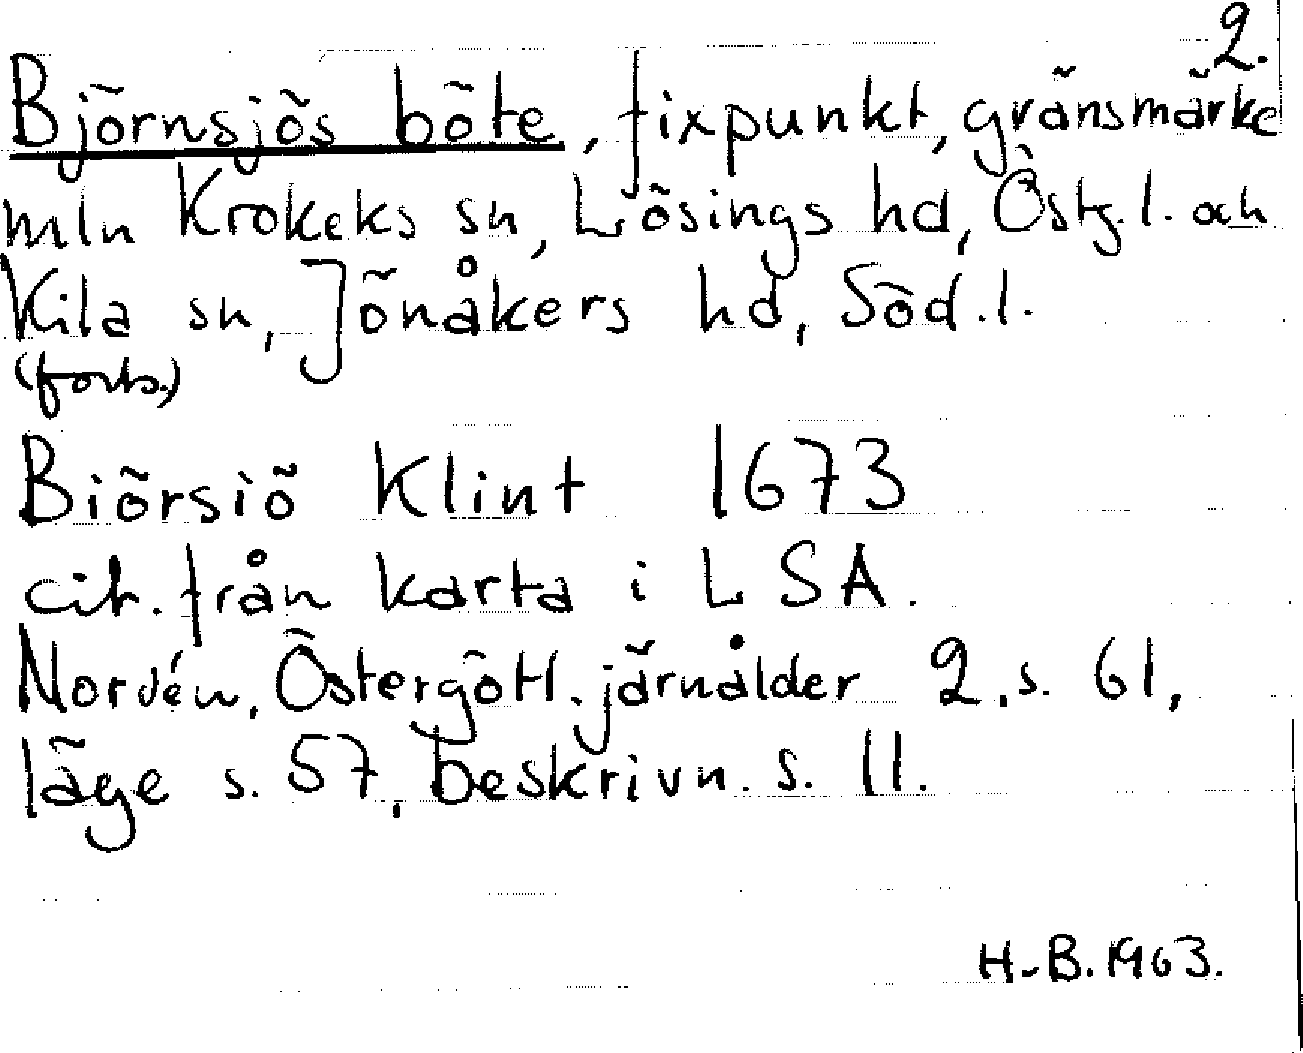 2.
Björnsjös böte, fixpunkt, gränsmärke
mln Krokeks sn, Lösings hd, Östg.l. och
Kila sn, Jönåkers hd, Söd.l.
(forts.)
Biörsiö Klint 1673
cit. från karta i LSA.
Nordén, Östergötl. järnålder 2, s. 61,
läge s. 57, beskrivn. s. 11.
H-B. 1963.